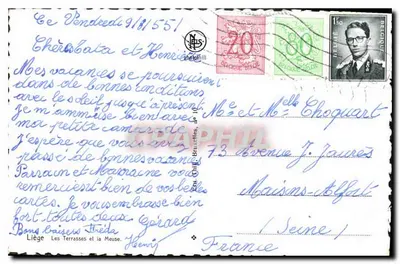 Ce Vendredi 9/9/55
Chers tata et Henri
Mes vacances se poursuivent
dans de bonnes conditions
avec le soleil jusqu'à présent
je m'ammuse bien avec
ma petite camarade
J'espère que vous avez
passé de bonnes vacances
Parrain et Marraine vous
remercient bien de vos belles
cartes. Je vous embrasse bien
fort toutes deux. Gérard
Bons baisers
Liège Les Terrasses et la Meuse.
NELS
20
80
BELGIQUE
Me et Melle Choquart
73 Avenue J. Jaurès
Maisons-Alfort
(Seine)
France